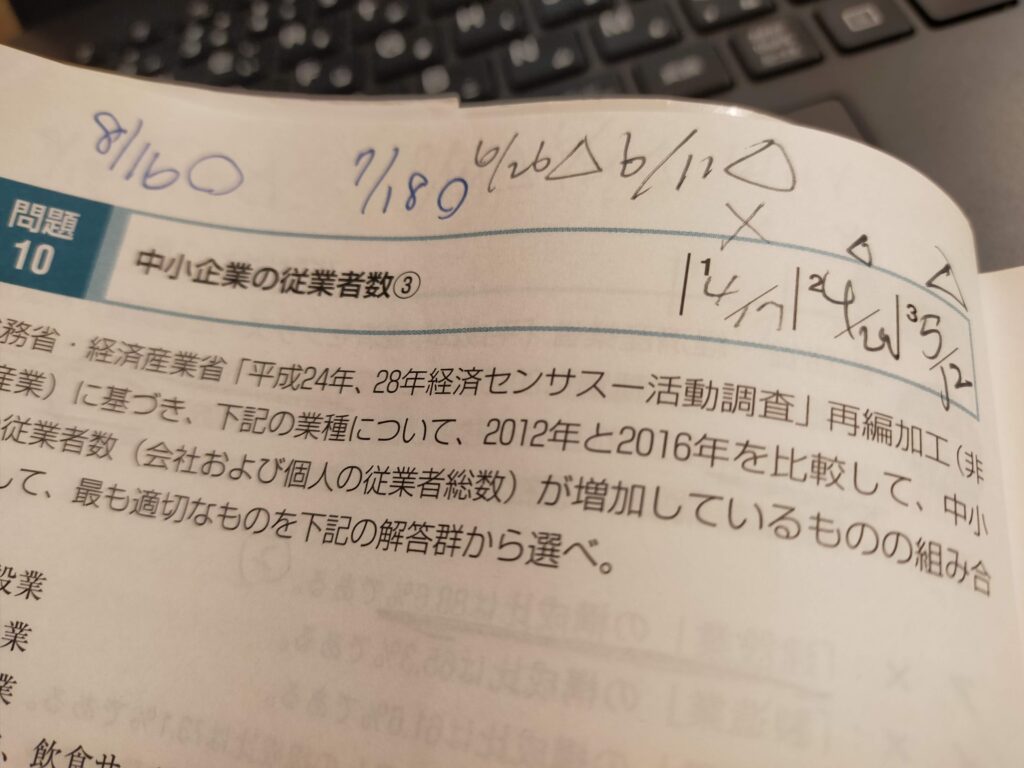 8/16○ 7/18○ 6/26△ 6/11△
× △ △
問題
10
中小企業の従業者数③
1 4/17 2 4/2 3 5/12
務省・経済産業省「平成24年、28年経済センサス―活動調査」再編加工(非
産業)に基づき、下記の業種について、2012年と2016年を比較して、中小
従業者数(会社および個人の従業者総数)が増加しているものの組み合
して、最も適切なものを下記の解答群から選べ。
設業
業
業
、飲食サ
「建設業」の構成比は88.6%である。